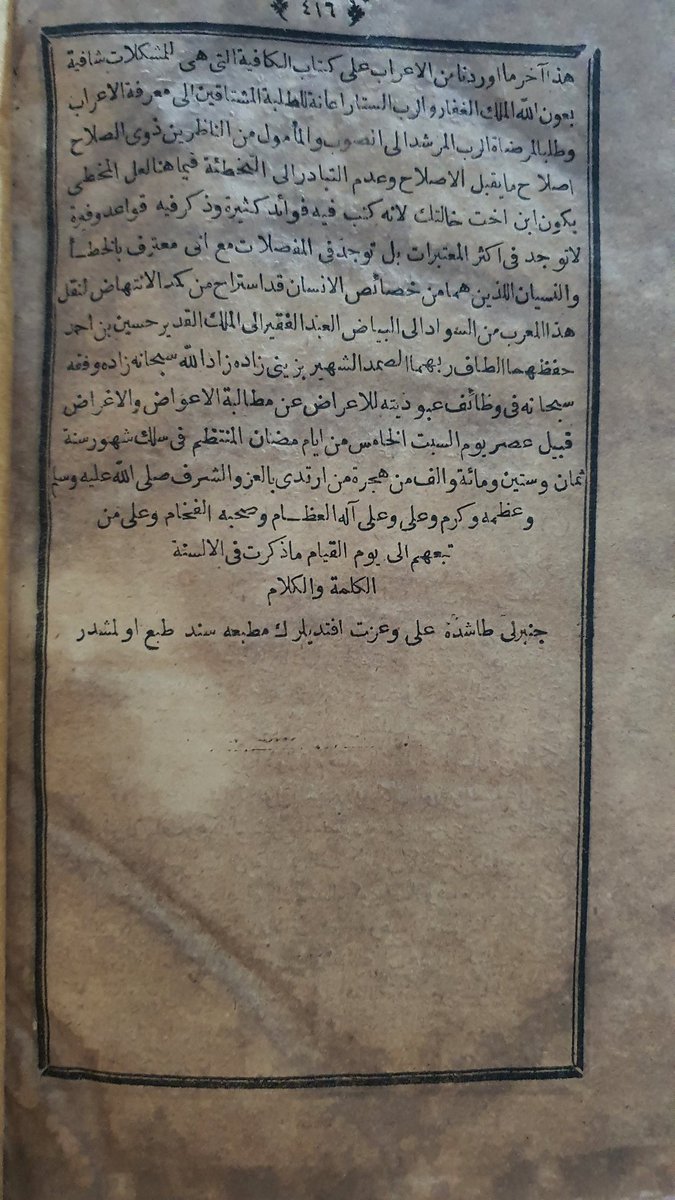 ٤١٦
هذا آخر ما اوردنا من الاعراب على كتاب الكافية التى هى للمشكلات شافية
بعون الله الملك الغفار والرب الستار اعانة للطلبة المشتاقين الى معرفة الاعراب
وطلبا لمرضاة الرب المرشد الى الصوب والمأمول من الناظرين ذوى الصلاح
اصلاح ما يقبل الاصلاح وعدم التبادر الى التخطئة فيما هنا لعل المخطى
يكون ابن اخت خالتك لانه كتب فيه فوائد كثيرة وذكر فيه قواعد وفيرة
لاتوجد فى اكثر المعتبرات بل توجد فى المفصلات مع انى معترف بالخطأ
والنسيان اللذين هما من خصائص الانسان قد استراح من كد الانتهاض لنقل
هذا المعرب من السواد الى البياض العبد الفقير الى الملك القدير حسين بن احمد
حفظهما الطاف ربهما الصمد الشهير بزينى زاده زاد الله سبحانه زاده وفقه
سبحانه فى وظائف عبوديته للاعراض عن مطالبة الاعواض والاغراض
قبيل عصر يوم السبت الخامس من ايام رمضان المنتظم فى سلك شهور سنة
ثمان وستين ومائة والف من هجرة من ارتدى بالعز والشرف صلى الله عليه وسلم
وعظمه وكرم وعلى وعلى آله العظام وصحبه الفخام وعلى من
تبعهم الى يوم القيام ماذكرت فى الالسنة
الكلمة والكلام
جنبرلى طاشده على وعزت افنديلرك مطبعه سنده طبع اولمشدر